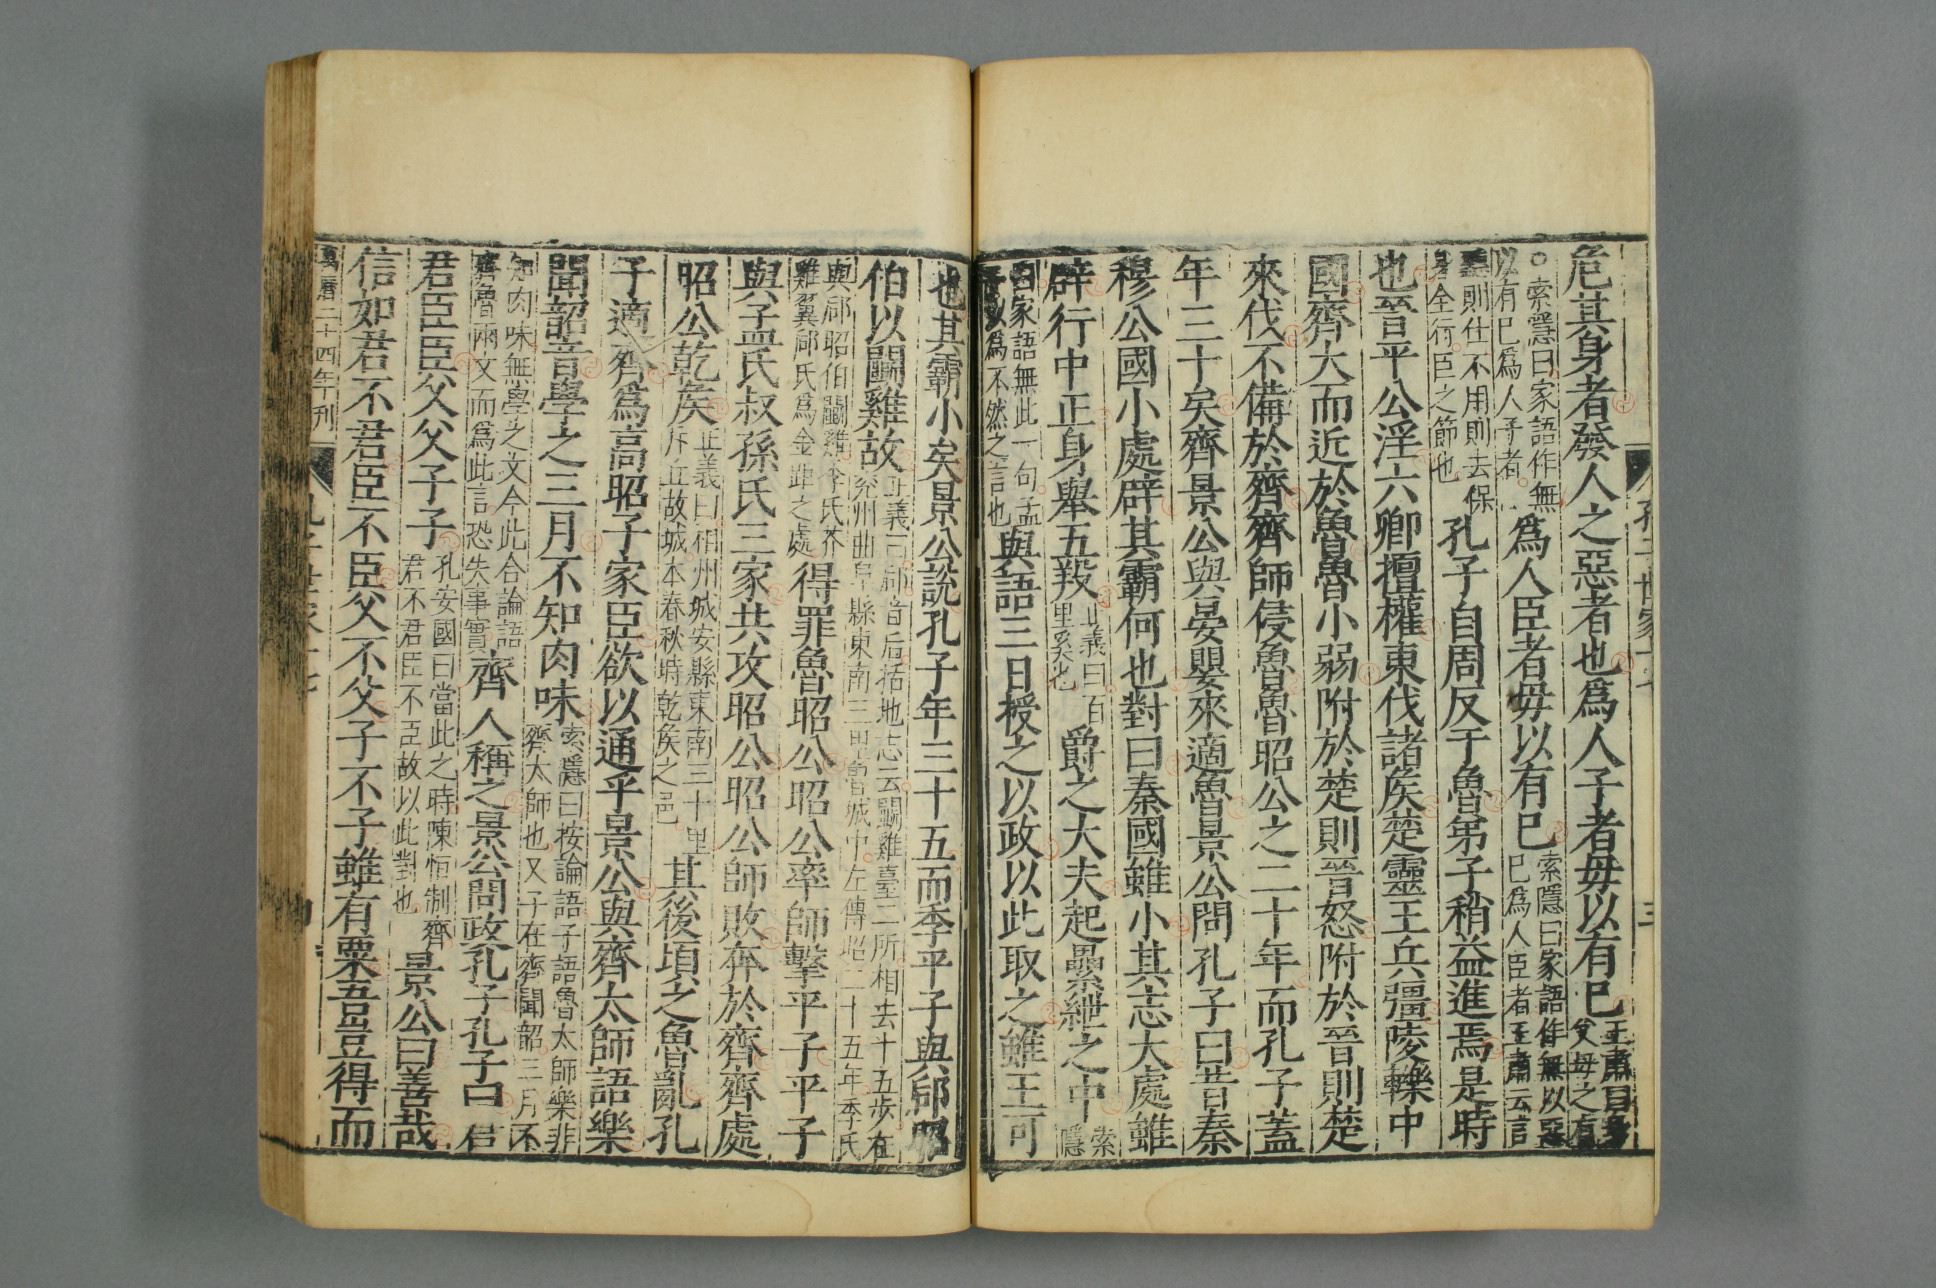 孔子世家十七
三
危其身者發人之惡者也爲人子者毋以有已王肅曰身父母之有
○索隱曰家語作無以有已爲人子者爲人臣者毋以有已索隱曰家語作無以惡已爲人臣者王肅云言
聽則仕不用則去保身全行臣之節也孔子自周反于魯弟子稍益進焉是時
也晉平公淫六卿擅權東伐諸侯楚靈王兵彊陵轢中
國齊大而近於魯魯小弱附於楚則晉怒附於晉則楚
來伐不備於齊齊師侵魯魯昭公之二十年而孔子蓋
年三十矣齊景公與晏嬰來適魯景公問孔子曰昔秦
穆公國小處辟其霸何也對曰秦國雖小其志大處雖
辟行中正身舉五羖正義曰百里奚也爵之大夫起纍紲之中索隱
曰家語無此一句孟子以爲不然之言也與語三日授之以政以此取之雖王可
也其霸小矣景公說孔子年三十五而季平子與郈昭
伯以鬬雞故正義曰郈音后括地志云鬬雞臺二所相去十五步在兗州曲阜縣東南三里魯城中左傳昭二十五年季氏
與郈昭伯鬬雞季氏芥雞翼郈氏爲金距之處得罪魯昭公昭公率師擊平子平子
與孟氏叔孫氏三家共攻昭公昭公師敗奔於齊齊處
昭公乾侯正義曰相州城安縣東南三十里斥丘故城本春秋時乾侯之邑其後頃之魯亂孔
子適齊爲高昭子家臣欲以通乎景公與齊太師語樂
聞韶音學之三月不知肉味索隱曰按論語子語魯太師樂非齊太師也又子在齊聞韶三月不
知肉味無學之文今此合論語齊魯兩文而爲此言恐失事實齊人稱之景公問政孔子孔子曰君
君臣臣父父子子孔安國曰當此之時陳恒制齊君不君臣不臣故以此對也景公曰善哉
信如君不君臣不臣父不父子不子雖有粟吾豈得而
萬曆二十四年刊
孔子世家十七